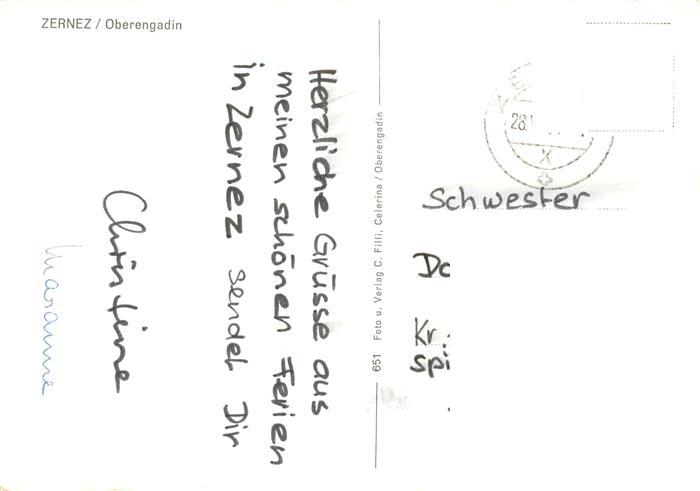 ZERNEZ / Oberengadin
Herzliche Grüsse aus
meinen schönen Ferien
in Zernez sendet Dir
Christine
Marianne
651 Foto u. Verlag C. Filli, Celerina / Oberengadin
28.1
X
Schwester
Do
Kr.
Spi